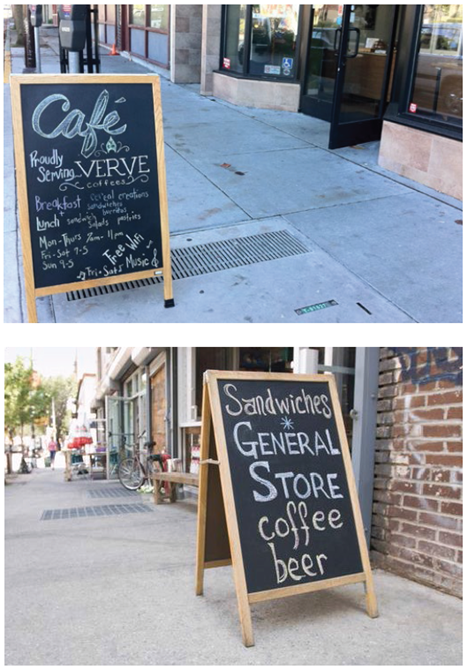 Café
Proudly
Serving... VERVE
coffees
Breakfast
Lunch
sandwiches
salads pastries
Mon-Thurs 7am-11pm
Fri-Sat 7-5
Sun 9-5
Free Wifi
Fri+Sat's Music
Sandwiches
GENERAL
STORE
coffee
beer